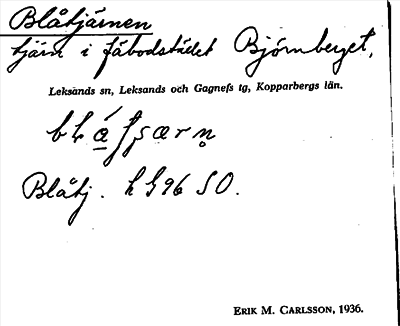 Blåtjärnen
tjärn i fäbodstället Björnberget,
Leksands sn, Leksands och Gagnefs tg, Kopparbergs län.
Blåtj. h G96 SO.
ERIK M. CARLSSON, 1936.